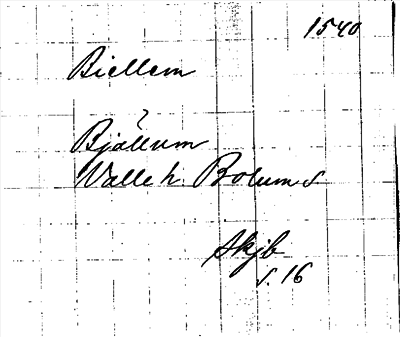 1540
Biellem
?
Bjällum
Valle h. Bolum s
Skjb
s. 16